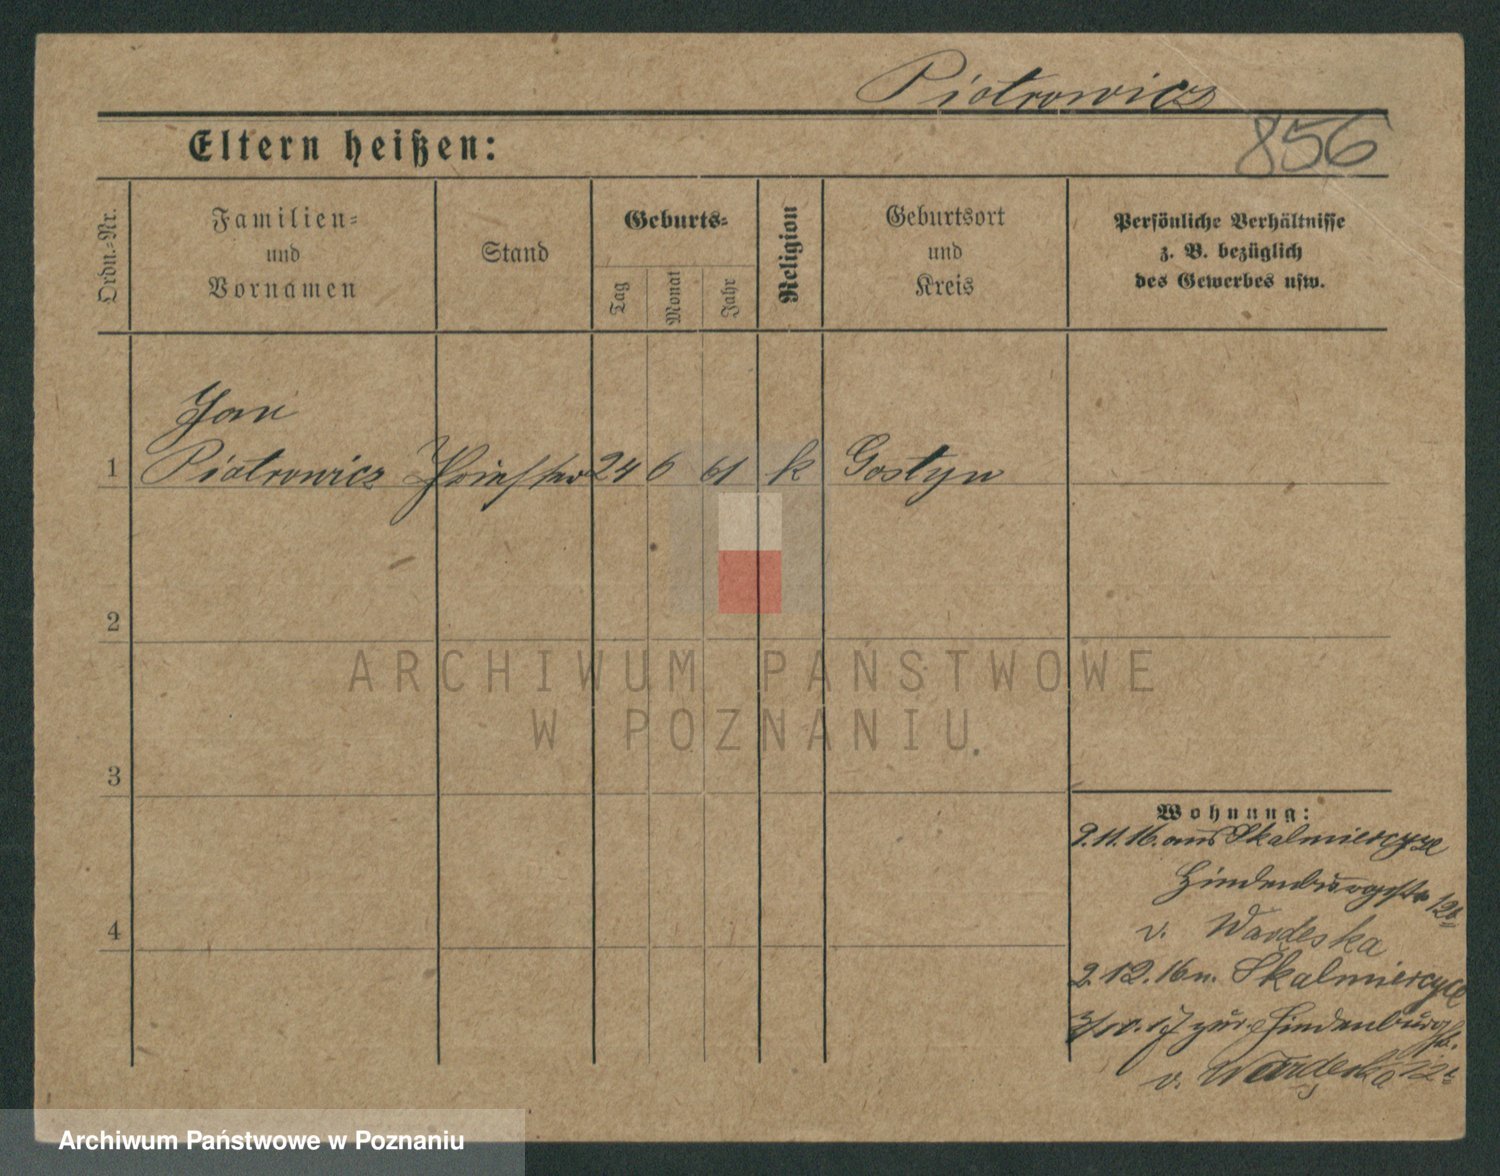 Piotrowicz
856
Eltern heißen:
Ordn.-Nr.
Familien-
und
Vornamen
Stand
Geburts-
Tag
Monat
Jahr
Religion
Geburtsort
und
Kreis
Persönliche Verhältnisse
z. B. bezüglich
des Gewerbes usw.
Jan
1 Piotrowicz Priester 24 6 61 k Gostyn
2
3
4
Wohnung:
9.11.16. aus Skalmierzyce
Hindenburgstr 12
v. Wardęska
2.12.16 n. Skalmierzyce
zur. Hindenburgstr.
v. Wardęska 12
ARCHIWUM PAŃSTWOWE
W POZNANIU
Archiwum Państwowe w Poznaniu